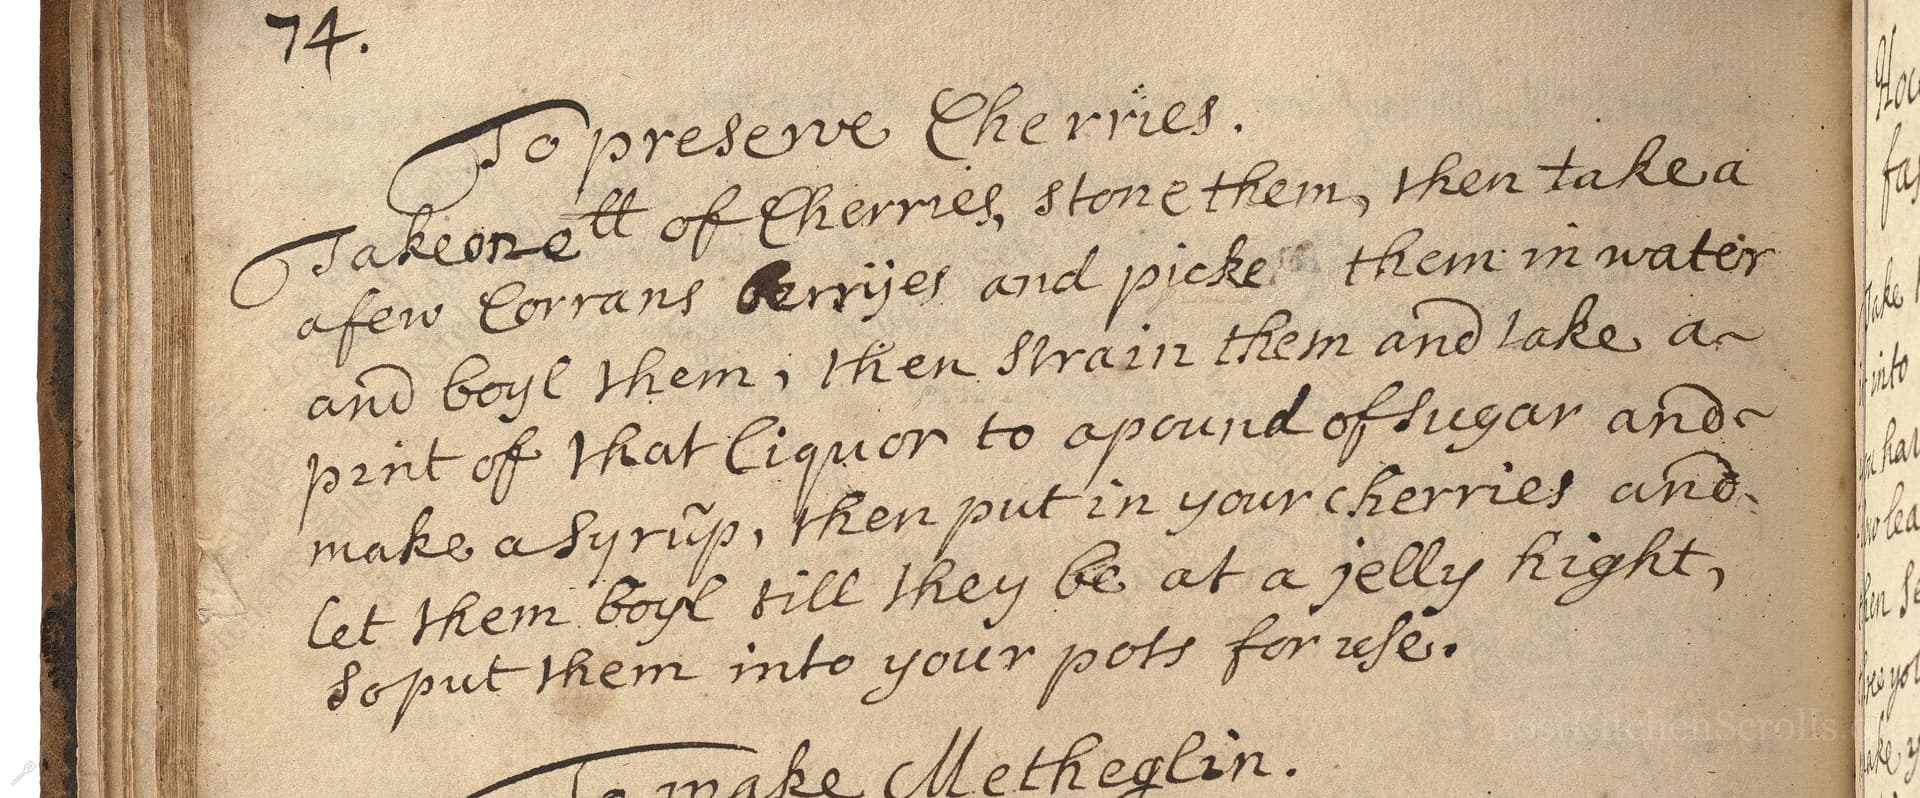 74.
To preserve Cherries.
Take one tt of Cherries, stone them, then take a
a few Corrans berrijes and picke them in water
and boyl them, then strain them and take a
pint of that liquor to a pound of sugar and
make a syrũp, then put in your cherries and
let them boyl till they be at a jelly hight,
so put them into your pots for use.
To make Metheglin.
How
fa
Take
into
you hav
lea
then se
yo
make y
LostKitchenScrolls.c